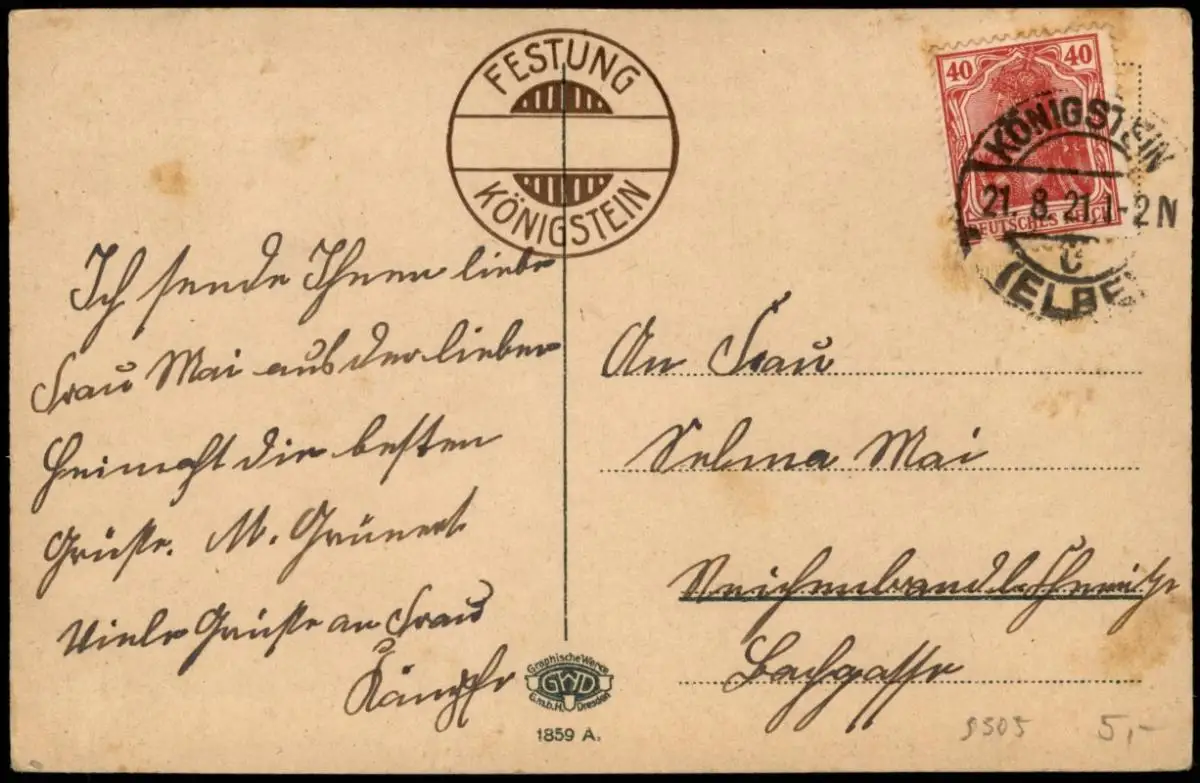 FESTUNG
KÖNIGSTEIN
40 40
DEUTSCHES REICH
KÖNIGSTEIN
21. 8. 21. 1-2 N
c
(ELBE)
Ich sende Ihnen liebe
Frau Mai aus der lieben
Heimaht die besten
Grüße. M. Grünert
Viele Grüße an Frau
Kämpfe
An Frau
Selma Mai
Reichenbrand b. Chemnitz
Bachgasse
Graphische Werke
GWD
G.m.b.H. Dresden
1859 A.
9505 5,-